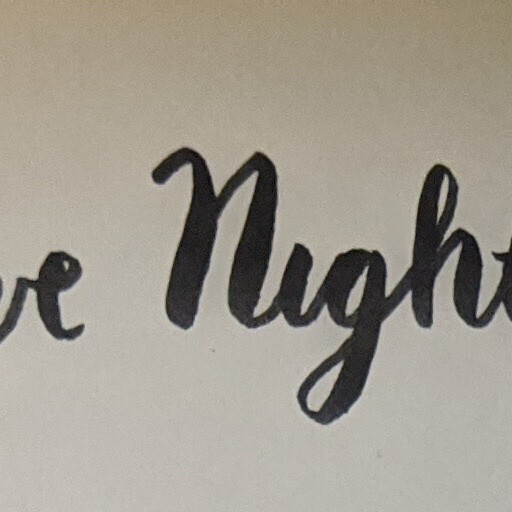 ve Night